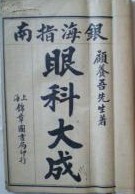 銀海指南
顧養吾先生著
眼科大成
上海錦章圖書局印行